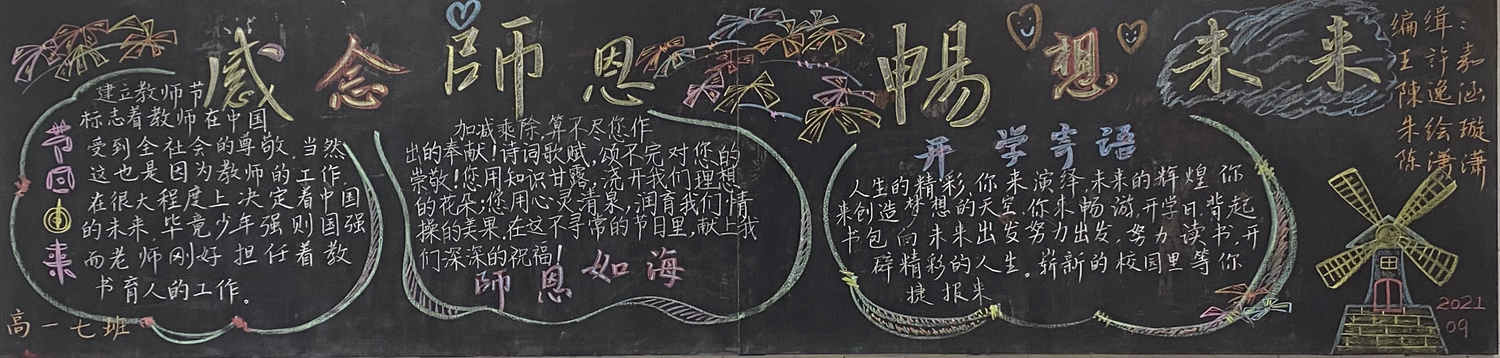 感念師恩 畅想未来
编缉：
王許嘉
陳逸涵
朱绘璇
陈潇潇
节日由来
建立教师节
标志着教师在中国
受到全社会的尊敬。当然
这也是因为教师的工作，
在很大程度上决定着中国
的未来。毕竟少年强则国强
而老师刚好担任着教
书育人的工作。
高一七班
加减乘除，算不尽您作
出的奉献！诗词歌赋，颂不完对您的
崇敬！您用知识甘露，浇开我们理想
的花朵；您用心灵清泉，润育我们情
操的美果。在这不寻常的节日里，献上我
们深深的祝福！
師恩如海
开学寄语
人生的精彩，你来演绎，未来的辉煌你
来创造梦想的天空，你来畅游，开学日，背起
书包向未来出发努力出发，努力读书，开
辟精彩的人生。崭新的校园里等你
捷报来
2021
09